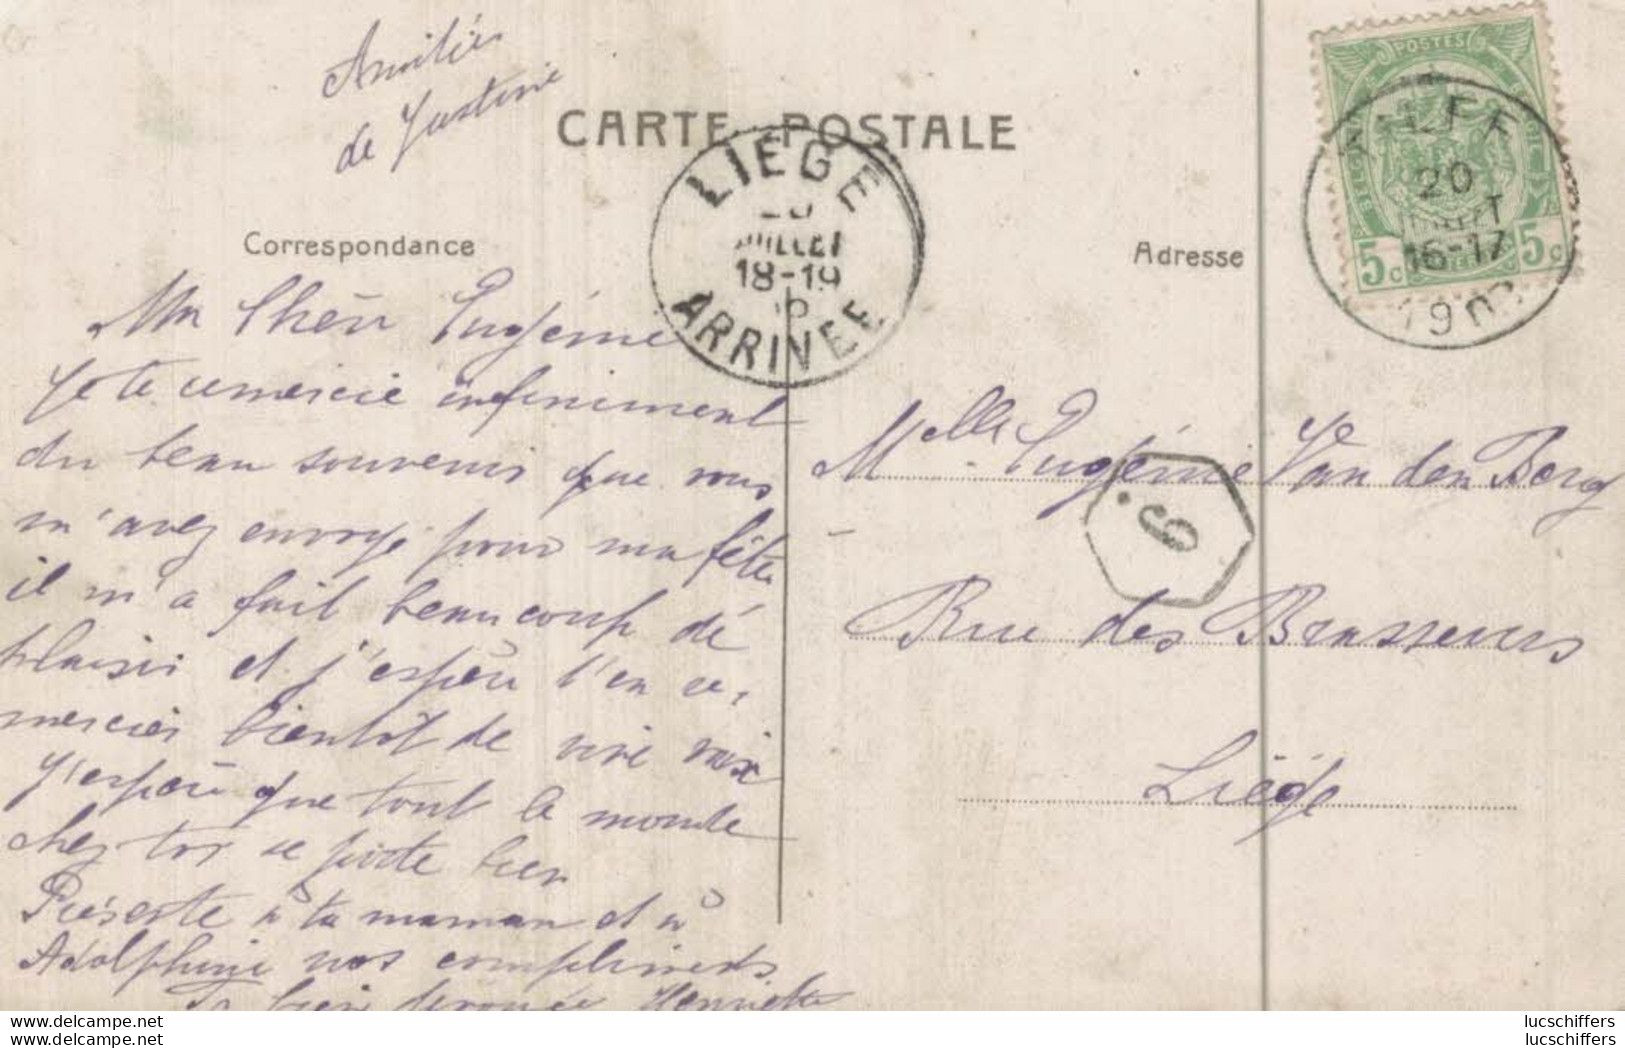 Amitiés
de Justine
CARTE POSTALE
Correspondance
Adresse
LIEGE
20
JUILLET
18-19
ARRIVEE
POSTES
5c 5c
20
16-17
190
Ma Chère Eugénie
Je te remercie infiniment
du beau souvenir que vous
m'avez envoyé pour ma fête
il m'a fait beaucoup dé
plaisir et j'espère t'en re-
mercier bientôt de vive voix
J'espère que tout le monde
chez toi se porte bien
Présente à ta maman et à
Adolphine nos compliments
Ta bien dévouée Henriette
Melle Eugénie Van den Berg
6
Rue des Brasseurs
Liége
lucschiffers
lucschiffers
lucschiffers
lucschiffers